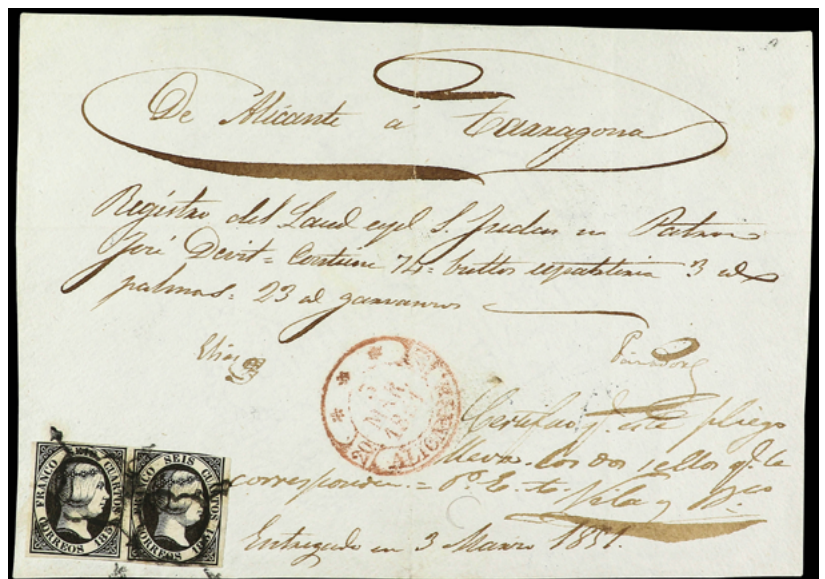 De Alicante á Tarragona
Registro del Laud español S. Judas su Patron
José Devit = Contiene 74 = bultos 3 de
palmas = 23 de garvanzos
Elias
Certifico qe este pliego
lleva los dos sellos qe le
corresponden = Vila y
Entregado en 3 Marzo 1851.
3
MAR
1851
ALICANTE
FRANCO SEIS CUARTOS
CORREOS 1851
FRANCO SEIS CUARTOS
CORREOS 1851